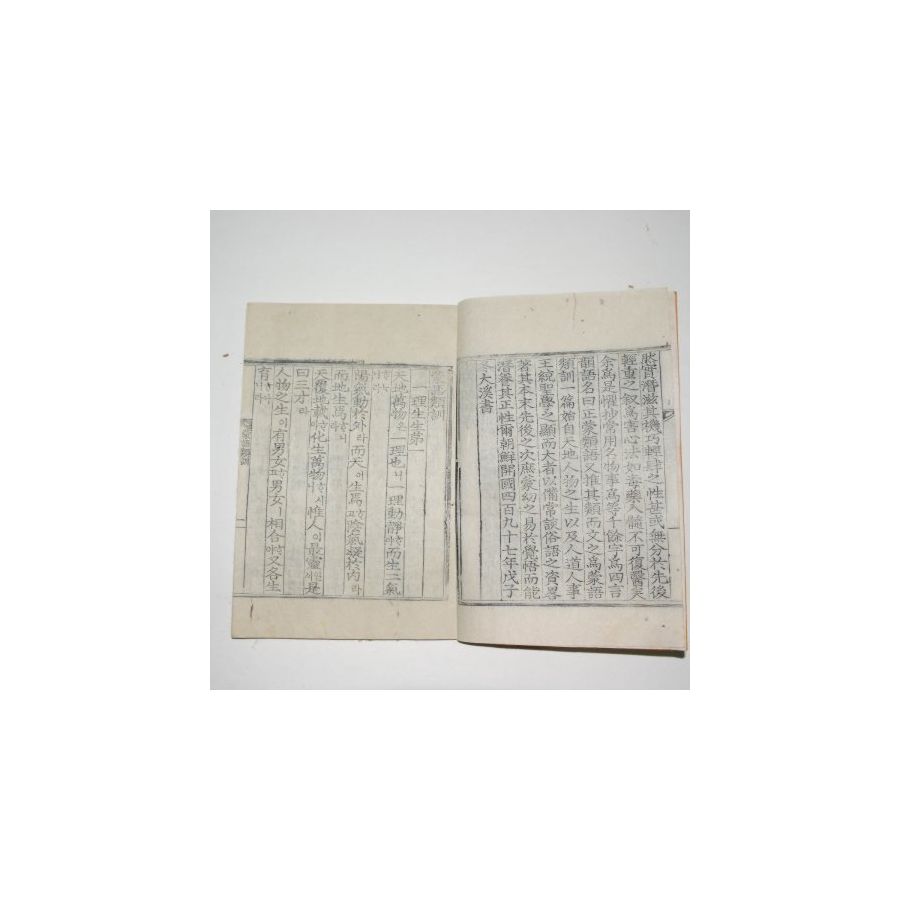 然實濟滋其機巧輕肆之性甚或無分於先後
輕重之叙爲害心法如毒藥入髓不可復醫矣
余爲是懼抄常用名物事爲等千餘字爲四言
韻語名曰正蒙類語又推其類而文之爲蒙語
類訓一篇始自天地人物之生以及人道人事
王統聖學之顯而大者以備常談俗語之資畧
著其本末先後之次庶蒙幼之易於覺悟而能
潛養其正性爾朝鮮開國四百九十七年戊子
冬大溪書
蒙語類訓
一理生生第一
天地萬物은一理也니一理動靜而生二氣
陽氣動於外라而天이生焉고陰氣凝於内라
而地生焉니
天覆地載라化生萬物시惟人이最靈일是
曰三才라
人物之生이有男女고男女ㅣ相合야又各生
育니라
蒙語類訓
一